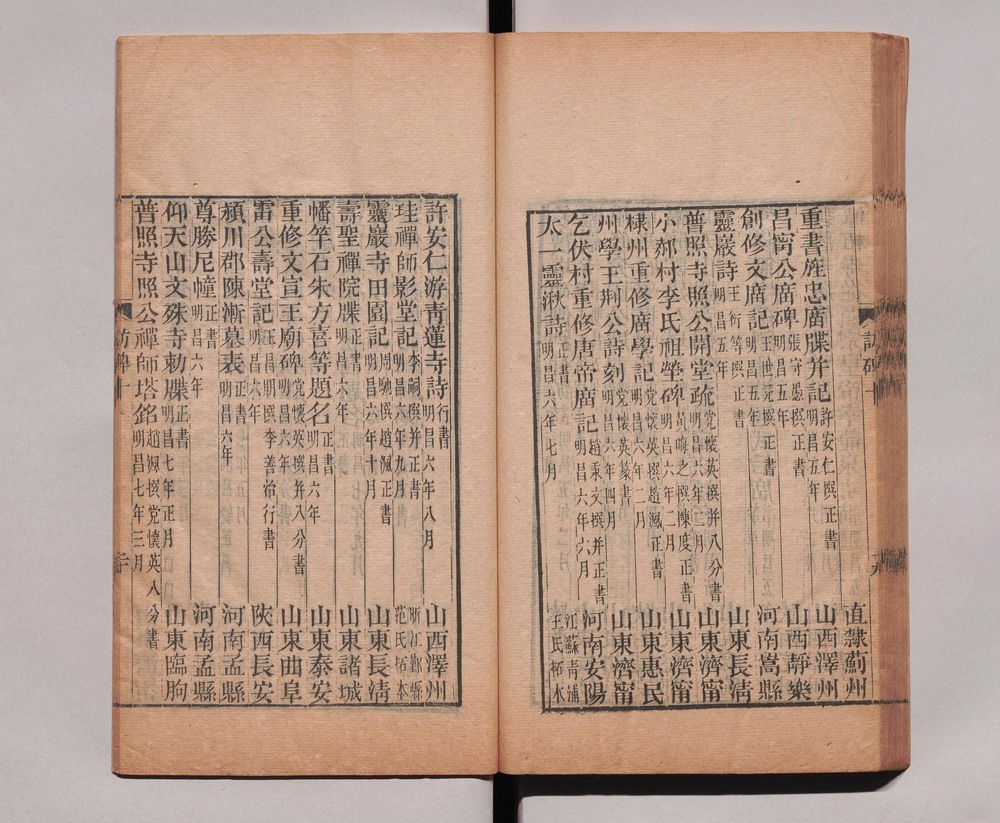 直隸薊州
重書旌忠廟牒并記 許安仁撰正書 明昌五年六月 山西澤州
昌甯公廟碑 張守愚撰正書 明昌五年 山西靜樂
創修文廟記 撰正書 明昌五年 河南嵩縣
靈巖詩 王珩等撰正書 明昌五年 山東長清
普照寺照公開堂疏 党懷英撰并八分書 明昌六年二月 山東濟甯
小郝村李氏祖塋碑 黃晦之撰陳度正書 明昌六年二月 山東濟甯
棣州重修廟學記 党懷英撰趙渢正書 明昌六年二月 山東惠民
州學王荆公詩刻 党懷英篆書 明昌六年四月 山東濟甯
乞伏村重修唐帝廟記 趙秉文撰并正書 明昌六年六月 河南安陽
太一靈湫詩 正書 明昌六年七月 江蘇青浦王氏拓本
許安仁游青蓮寺詩 行書 明昌六年八月 山西澤州
珪禪師影堂記 李嗣撰并正書 明昌六年九月 浙江鄞縣范氏拓本
靈巖寺田園記 周馳撰趙渢正書 明昌六年十月 山東長清
壽聖禪院牒 正書 明昌六年 山東諸城
幡竿石朱方喜等題名 正書 明昌六年 山東泰安
重修文宣王廟碑 党懷英撰并八分書 明昌六年 山東曲阜
雷公壽堂記 撰李善治行書 明昌六年 陝西長安
潁川郡陳漸墓表 正書 明昌六年 河南孟縣
尊勝尼幢 正書 明昌六年 河南孟縣
仰天山文殊寺勅牒 正書 明昌七年正月 山東臨朐
普照寺照公禪師塔銘 趙渢撰党懷英八分書 明昌七年三月
訪碑十